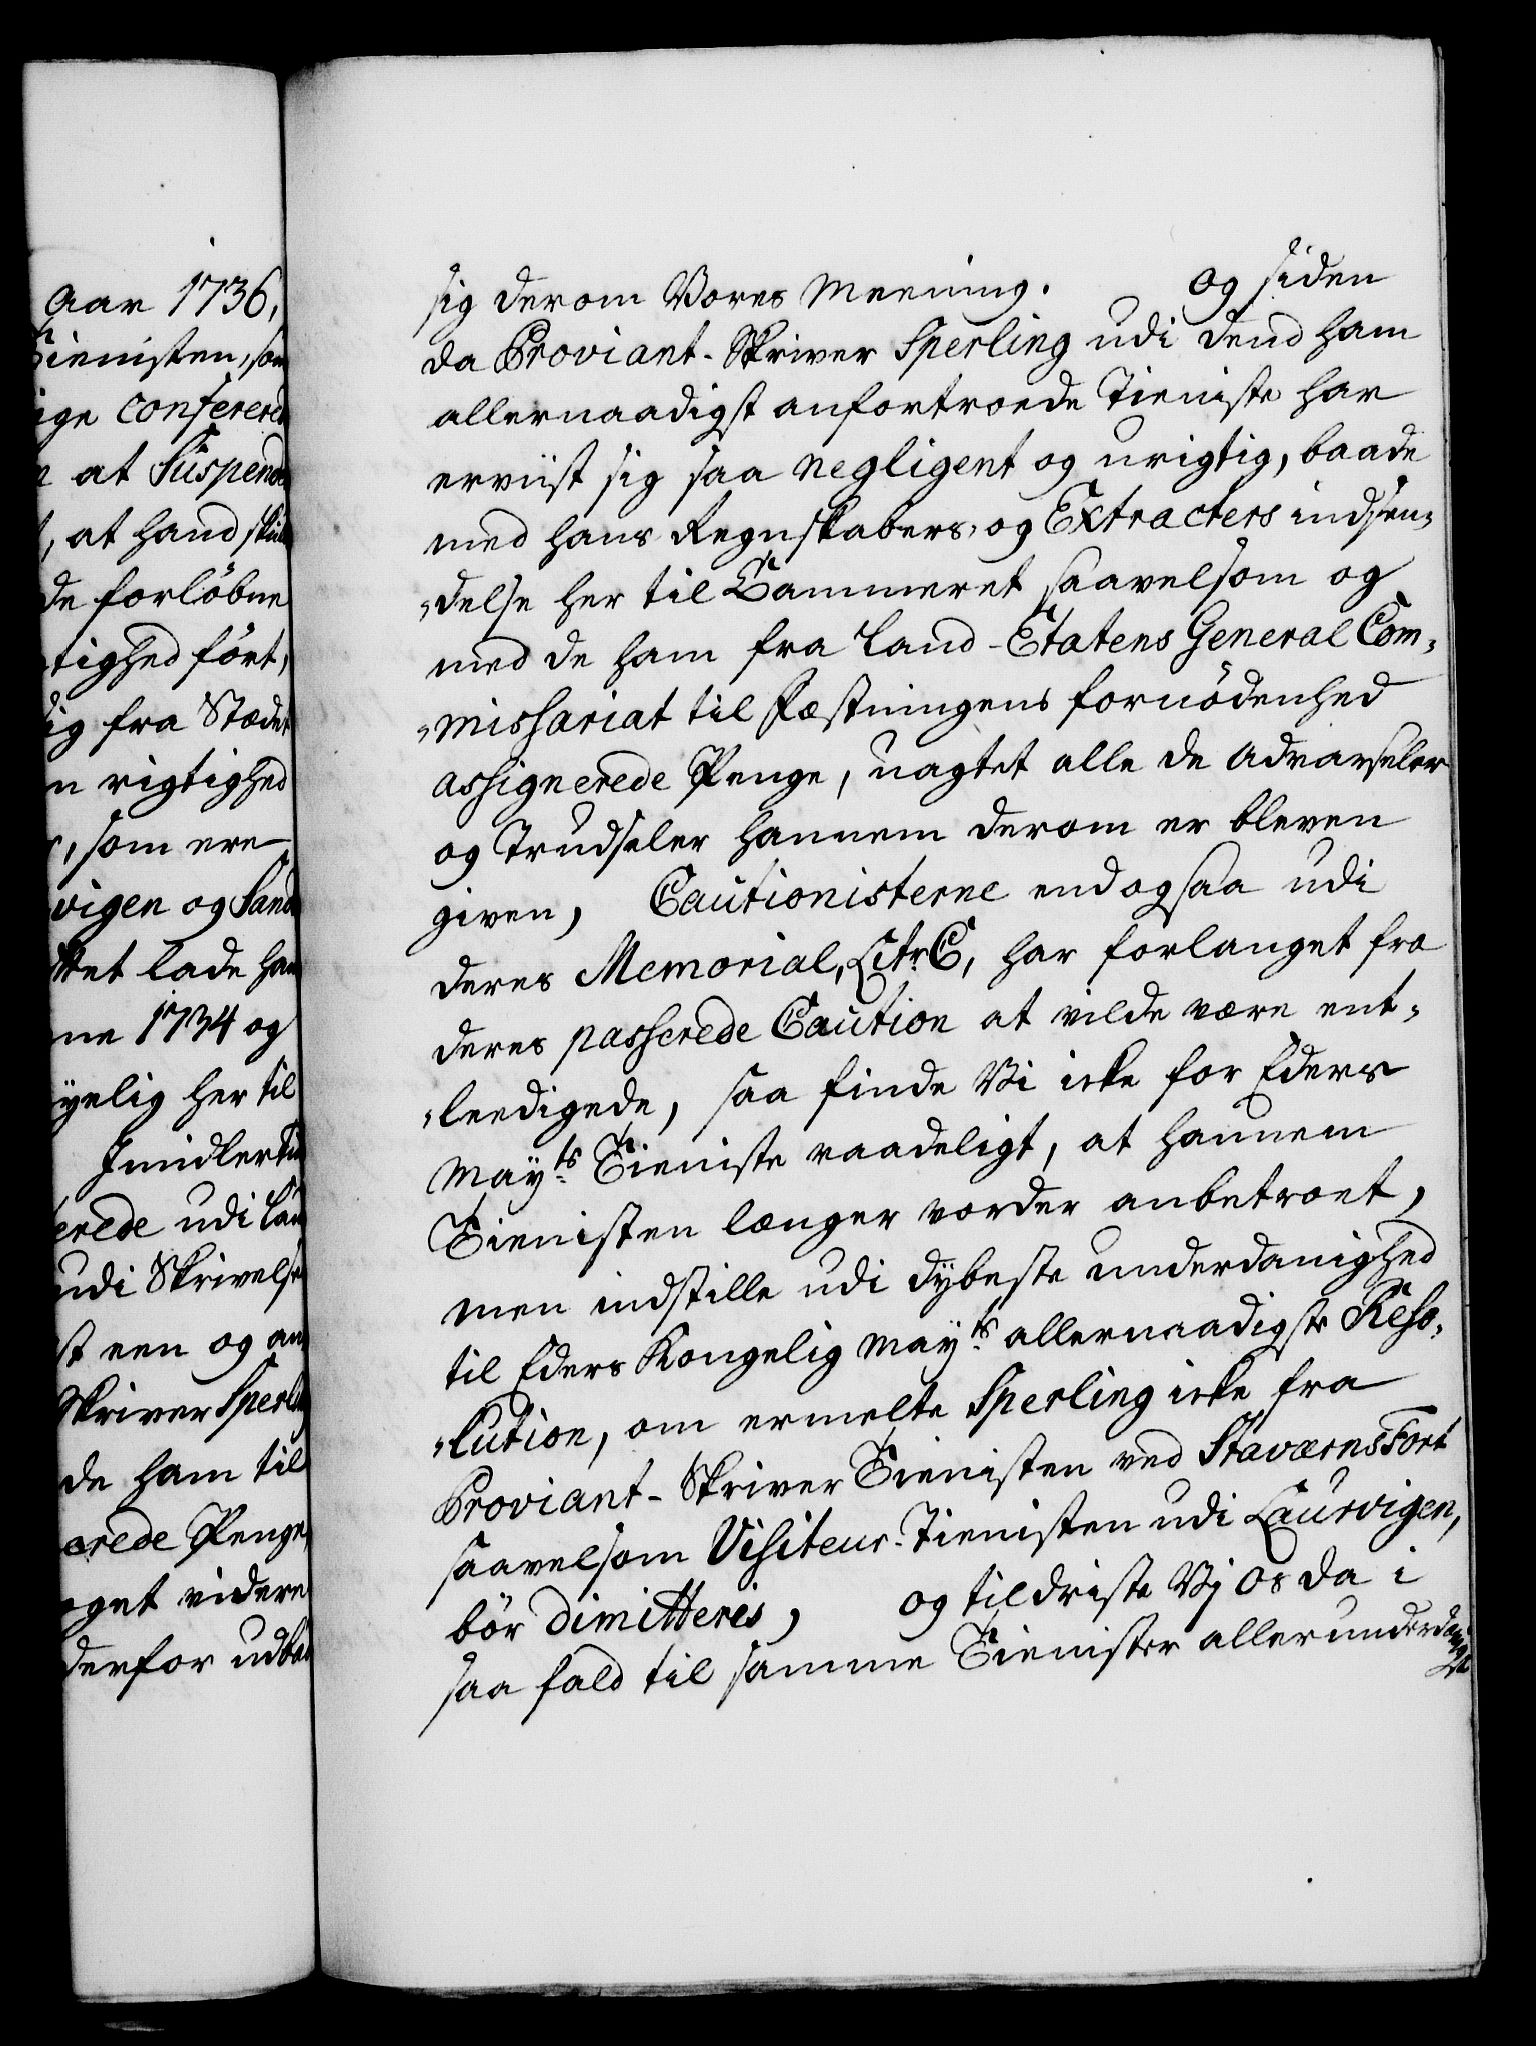 Aar 1736,
Tienisten, som
ige confererede
at Suspende
, at hand skul
de forløbne
tighed ført,
ig fra Stædet
n rigtighed
, som ere
vigen og Sand
tet lade ham
ne 1734 og
yelig her til
Jmidlertid
erede udi Lau
udi Skrivelse
st een og an
Skriver Sperling
de ham til
erede Penge
get videre
derfor udbe
sig derom Vores Meening. og siden
da Proviant-Skriver Sperling udi dend ham
allernaadigst anfortroede Tieniste har
erviist sig saa negligent og urigtig, baade
med hans Regnskabers, og Extracters indsen-
-delse her til Cammeret saavelsom og
med de ham fra Land-Etatens General Com-
-missariat til Fæstningens fornødenhed
assignerede Penge, uagtet alle de Advarseler
og Trudseler hannem derom er bleven
given, Cautionisterne endogsaa udi
deres Memorial, Litr. C, har forlanget fra
deres passerede Caution at vilde være ent-
-leedigede, saa finde Vi icke for Eders
Mayts Tieniste raadeligt, at hannem
Tienisten længer vorder anbetroet,
men indstille udi dybeste underdanighed
til Eders Kongelig Mayts allernaadigste Reso-
-lution, om ermelte Sperling icke fra
Proviant-Skriver Tienisten ved Staværns Fort
saavelsom Visiteur-Tienisten udi Laurvigen,
bör dimitteris, og tildriste Vj os da i
saa fald til samme Tienister allerunderdanigst